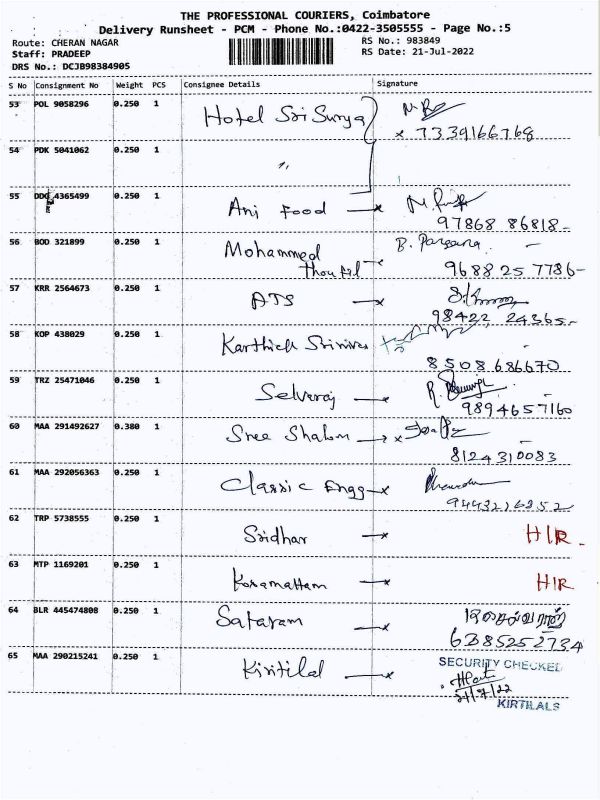 THE PROFESSIONAL COURIERS, Coimbatore
Delivery Runsheet - PCM - Phone No.:0422-3505555 - Page No.:5
Route: CHERAN NAGAR RS No.: 983849
Staff: PRADEEP RS Date: 21-Jul-2022
DRS No.: DCJB98384905
S No Consignment No Weight PCS Consignee Details Signature
53 POL 9058296 0.250 1 Hotel Sri Surya
7339166768
54 PDK 5041062 0.250 1 〃
55 DDG 4365499 0.250 1 Ani Food
97868 86818
56 BOD 321899 0.250 1 Mohammed B.
9688257786
57 KRR 2564673 0.250 1 ATS
98422 24365
58 KOP 438029 0.250 1 Karthick
8508686670
59 TRZ 25471046 0.250 1 Selvaraj R.
9894657160
60 MAA 291492627 0.380 1 Sree Shalom
8124310083
61 MAA 292056363 0.250 1 Classic Engg
9443216252
62 TRP 5738555 0.250 1 Sridhar HIR
63 MTP 1169201 0.250 1 Kosamattam HIR
64 BLR 445474808 0.250 1 Sataram
6385252734
65 MAA 290215241 0.250 1 Kiritilal SECURITY CHECKED
21/7/22
KIRTILALS